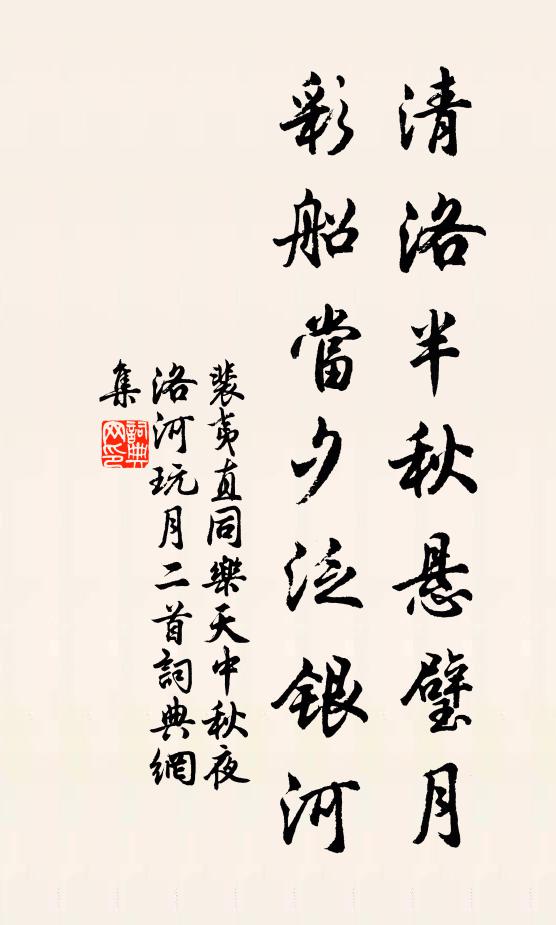 清洛半秋悬璧月
彩船當夕泛銀河
裴夷直同樂天中秋夜
洛河玩月二首詞典網
集
詞典
网印